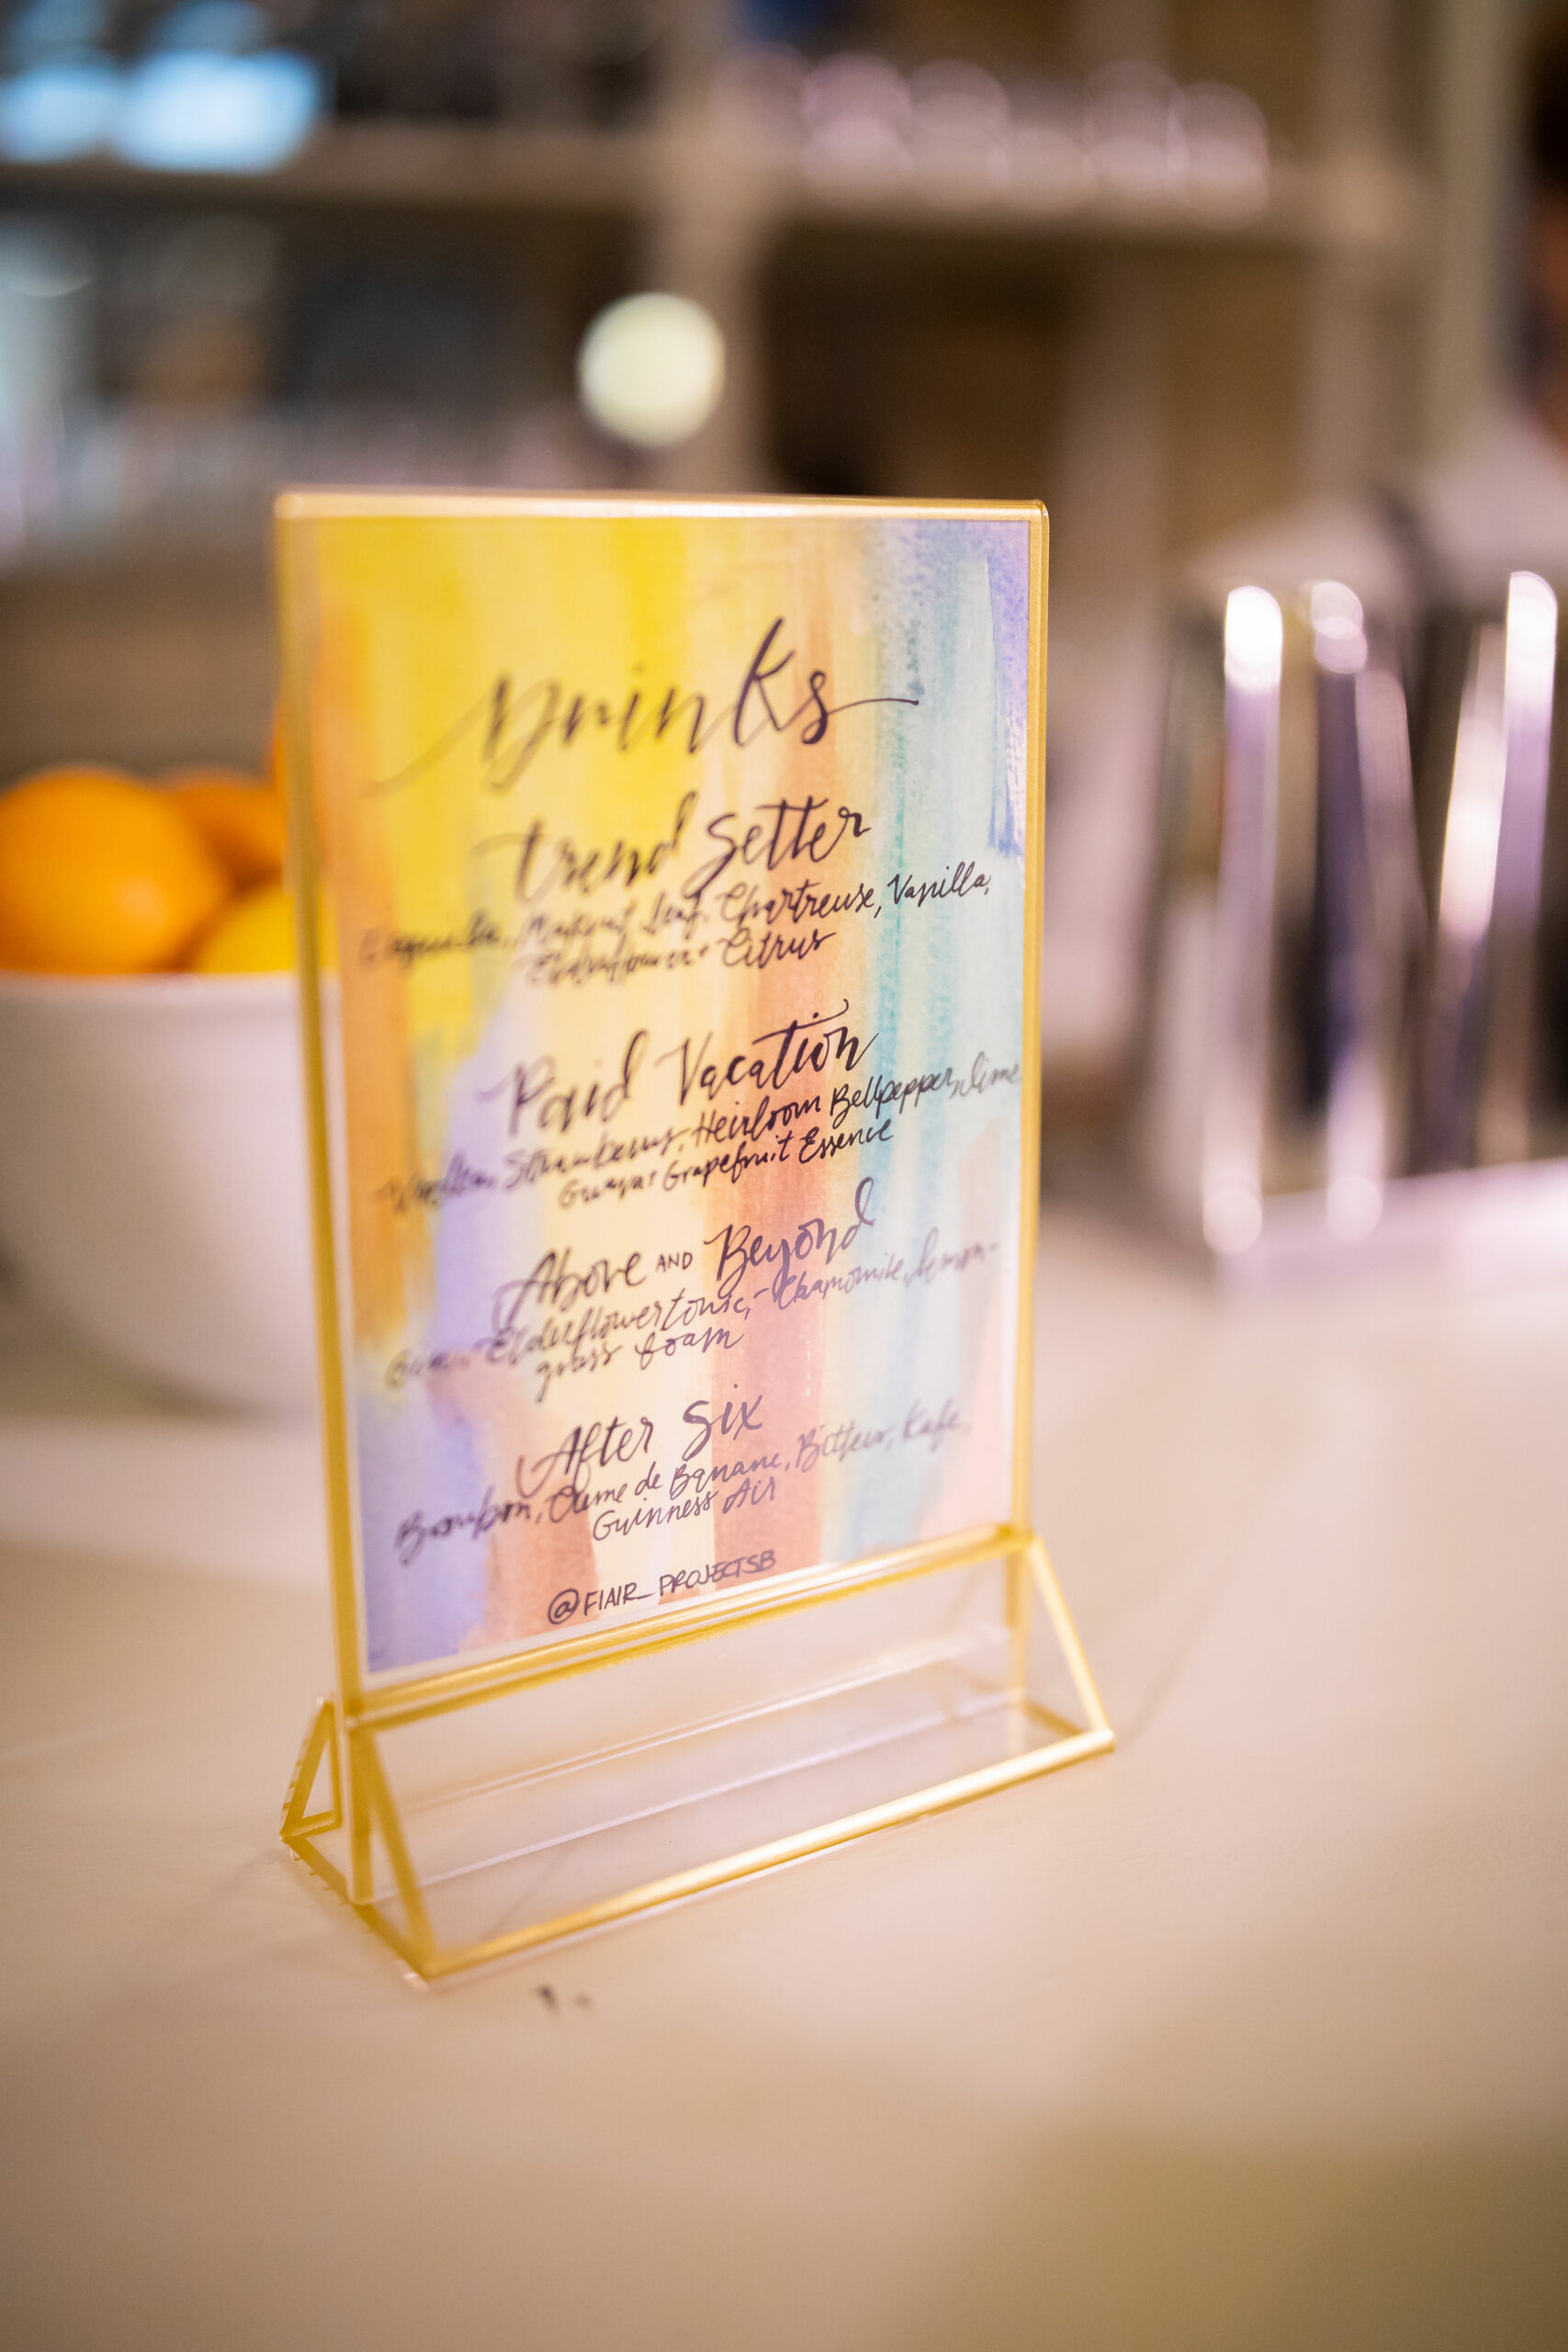 Drinks
Trend Setter
Chartreuse, Vanilla,
Elderflower + Citrus
Paid Vacation
Strawberry, Heirloom Bellpepper, Lime
Guava + Grapefruit Essence
Above AND Beyond
Elderflower tonic, Chamomile, Lemon-
grass foam
After Six
Bourbon, Creme de Banane, Bitters, Kafe,
Guinness Air
@FLAIR_PROJECTSB